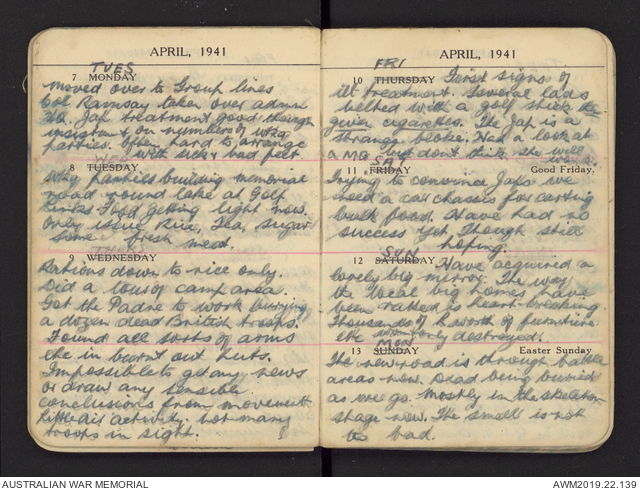 APRIL, 1941
TUES
7 MONDAY
Moved over to Group lines
Col Ramsay taken over admin
HQ. Jap treatment good though
insistent on numbers of wkg
parties. Often hard to arrange
with sick & bad feet
WED
8 TUESDAY
building memorial
road round lake at Golf
Links Food getting light now.
Only issue Rice, Tea, sugar
Some fresh meat.
THURS
9 WEDNESDAY
Rations down to rice only.
Did a tour of camp area.
Got the Padre to work burying
a dozen dead British troops.
Found all sorts of arms
etc in burnt out huts.
Impossible to get any news
or draw any sensible
conclusions from movement
Little air activity. Not many
troops in sight.
APRIL, 1941
FRI
10 THURSDAY First signs of
ill treatment. Several lads
belted with a golf stick
given cigarettes. The Jap is a
strange bloke. Had a look at
a MG but don't think she will
work.
SAT
11 FRIDAY Good Friday.
Trying to convince Japs we
need a car chassis for carting
bulk food. Have had no
success yet, though still
hoping.
SUN
12 SATURDAY Have acquired a
lovely big mirror. The way
the local big homes have
been raided is heart breaking.
Thousands of £ worth of furniture
etc destroyed.
MON
13 SUNDAY Easter Sunday
The new road is through battle
areas now. Dead being buried
as we go. Mostly in the skeleton
stage now. The smell is not
too bad.
AUSTRALIAN WAR MEMORIAL
AWM2019.22.139